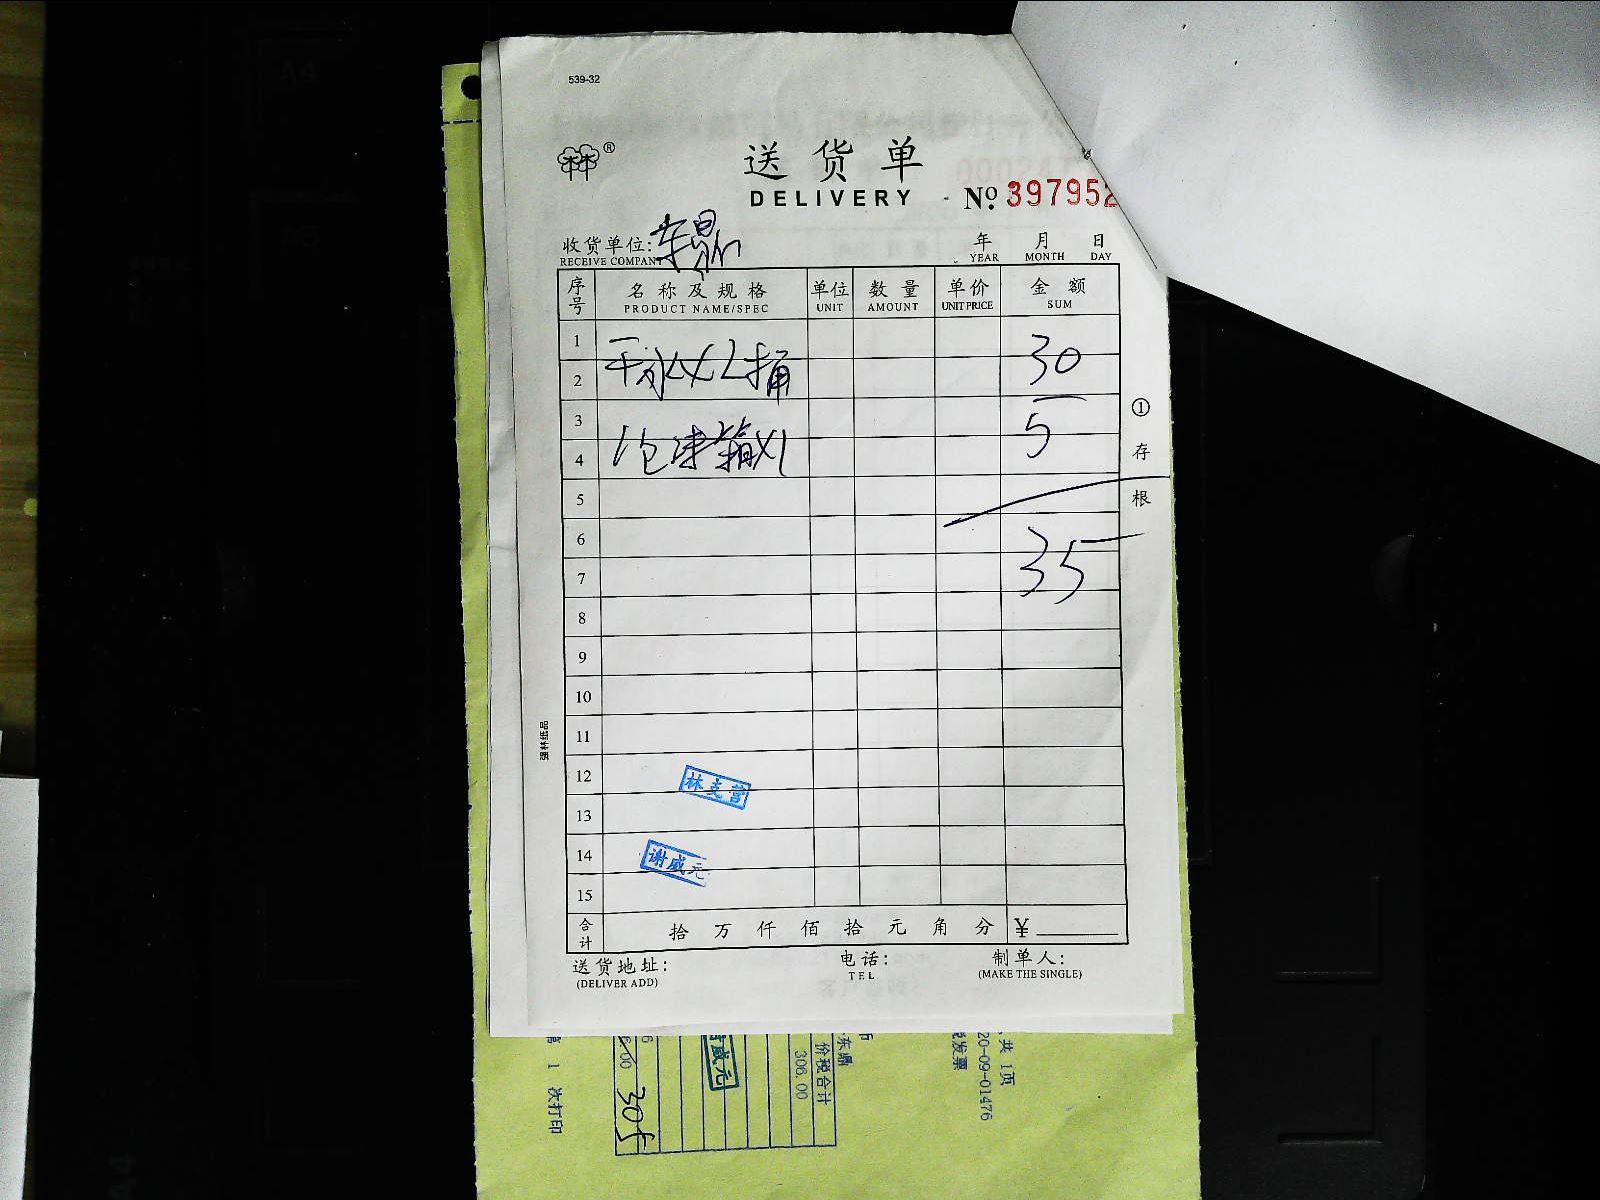 539-32
林林®
送货单
DELIVERY
№ 397952
收货单位: 东鼎
RECEIVE COMPANY
年 月 日
YEAR MONTH DAY
序号 名称及规格 单位 数量 单价 金额
PRODUCT NAME/SPEC UNIT AMOUNT UNIT PRICE SUM
1
2 干冰X2桶 30
3
4 泡沫箱X1 5
5
6
7 35
8
9
10
11
12 林支营
13
14 谢威元
15
合计 拾 万 仟 佰 拾 元 角 分 ¥
送货地址: 电话: 制单人:
(DELIVER ADD) TEL (MAKE THE SINGLE)
①存根
强林纸品
共 1页
20-09-01476
税发票
东鼎
价税合计
306.00
威元
6.00
305
1 次打印